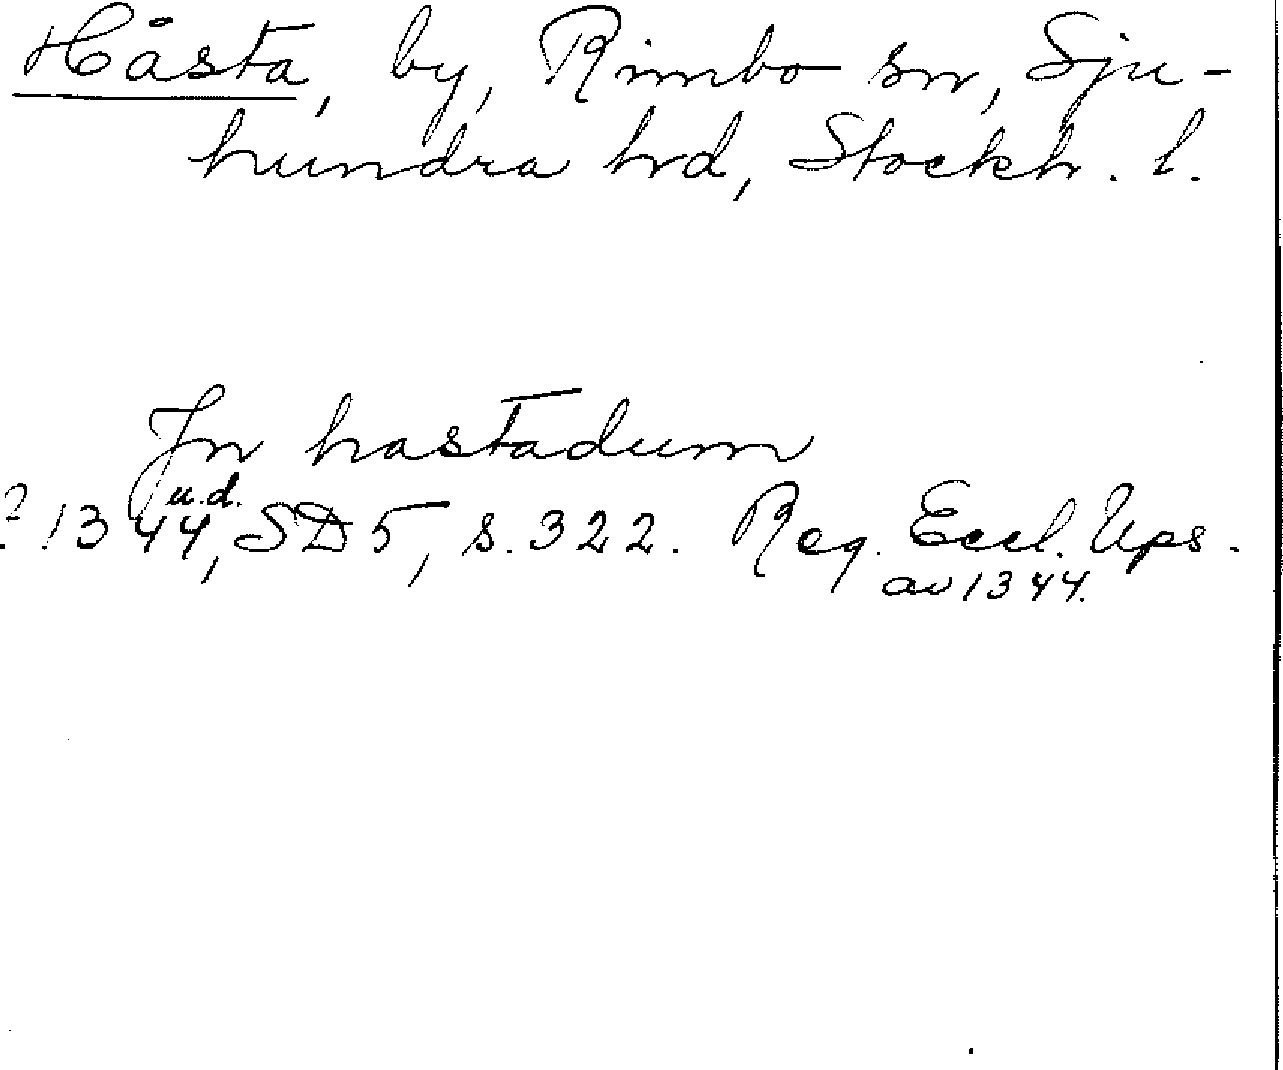 Håsta, by, Rimbo sn, Sju-
hundra hd, Stockh. l.
Jn hastadum
? 1344, u.d. SD 5, s. 322. Reg. Eccl. Ups.
av 1344.